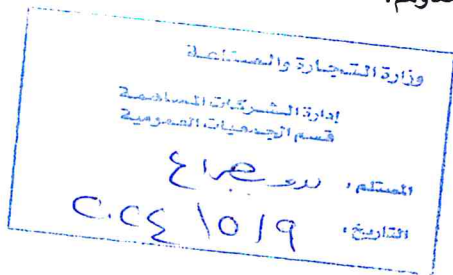 وزارة التجارة والصناعة
إدارة الشركات المساهمة
قسم الجمعيات العمومية
المستلم :
التاريخ : ٢٠٢٤ / ٥ / ٩